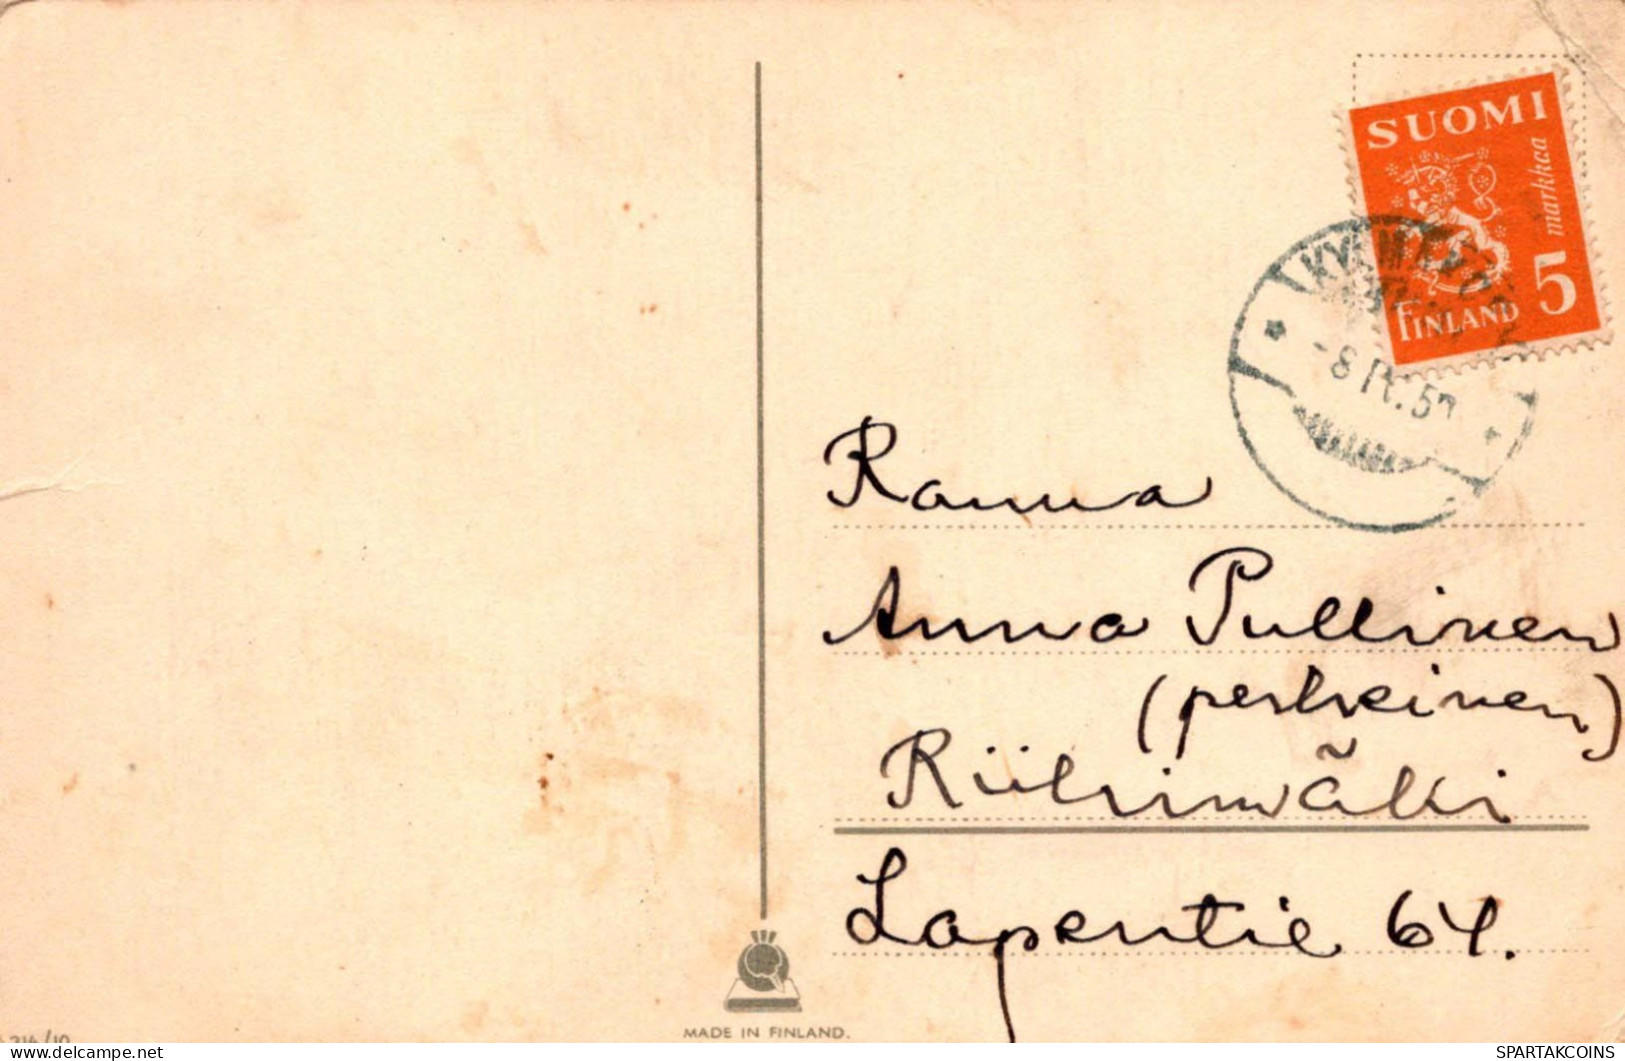 SUOMI
markkaa
5
FINLAND
-8.IV.5
Rouva
Anna Pullinen
(perheineen)
Riihimäki
Lopentie 64.
MADE IN FINLAND.
delcampe.net
SPARTAKCOINS